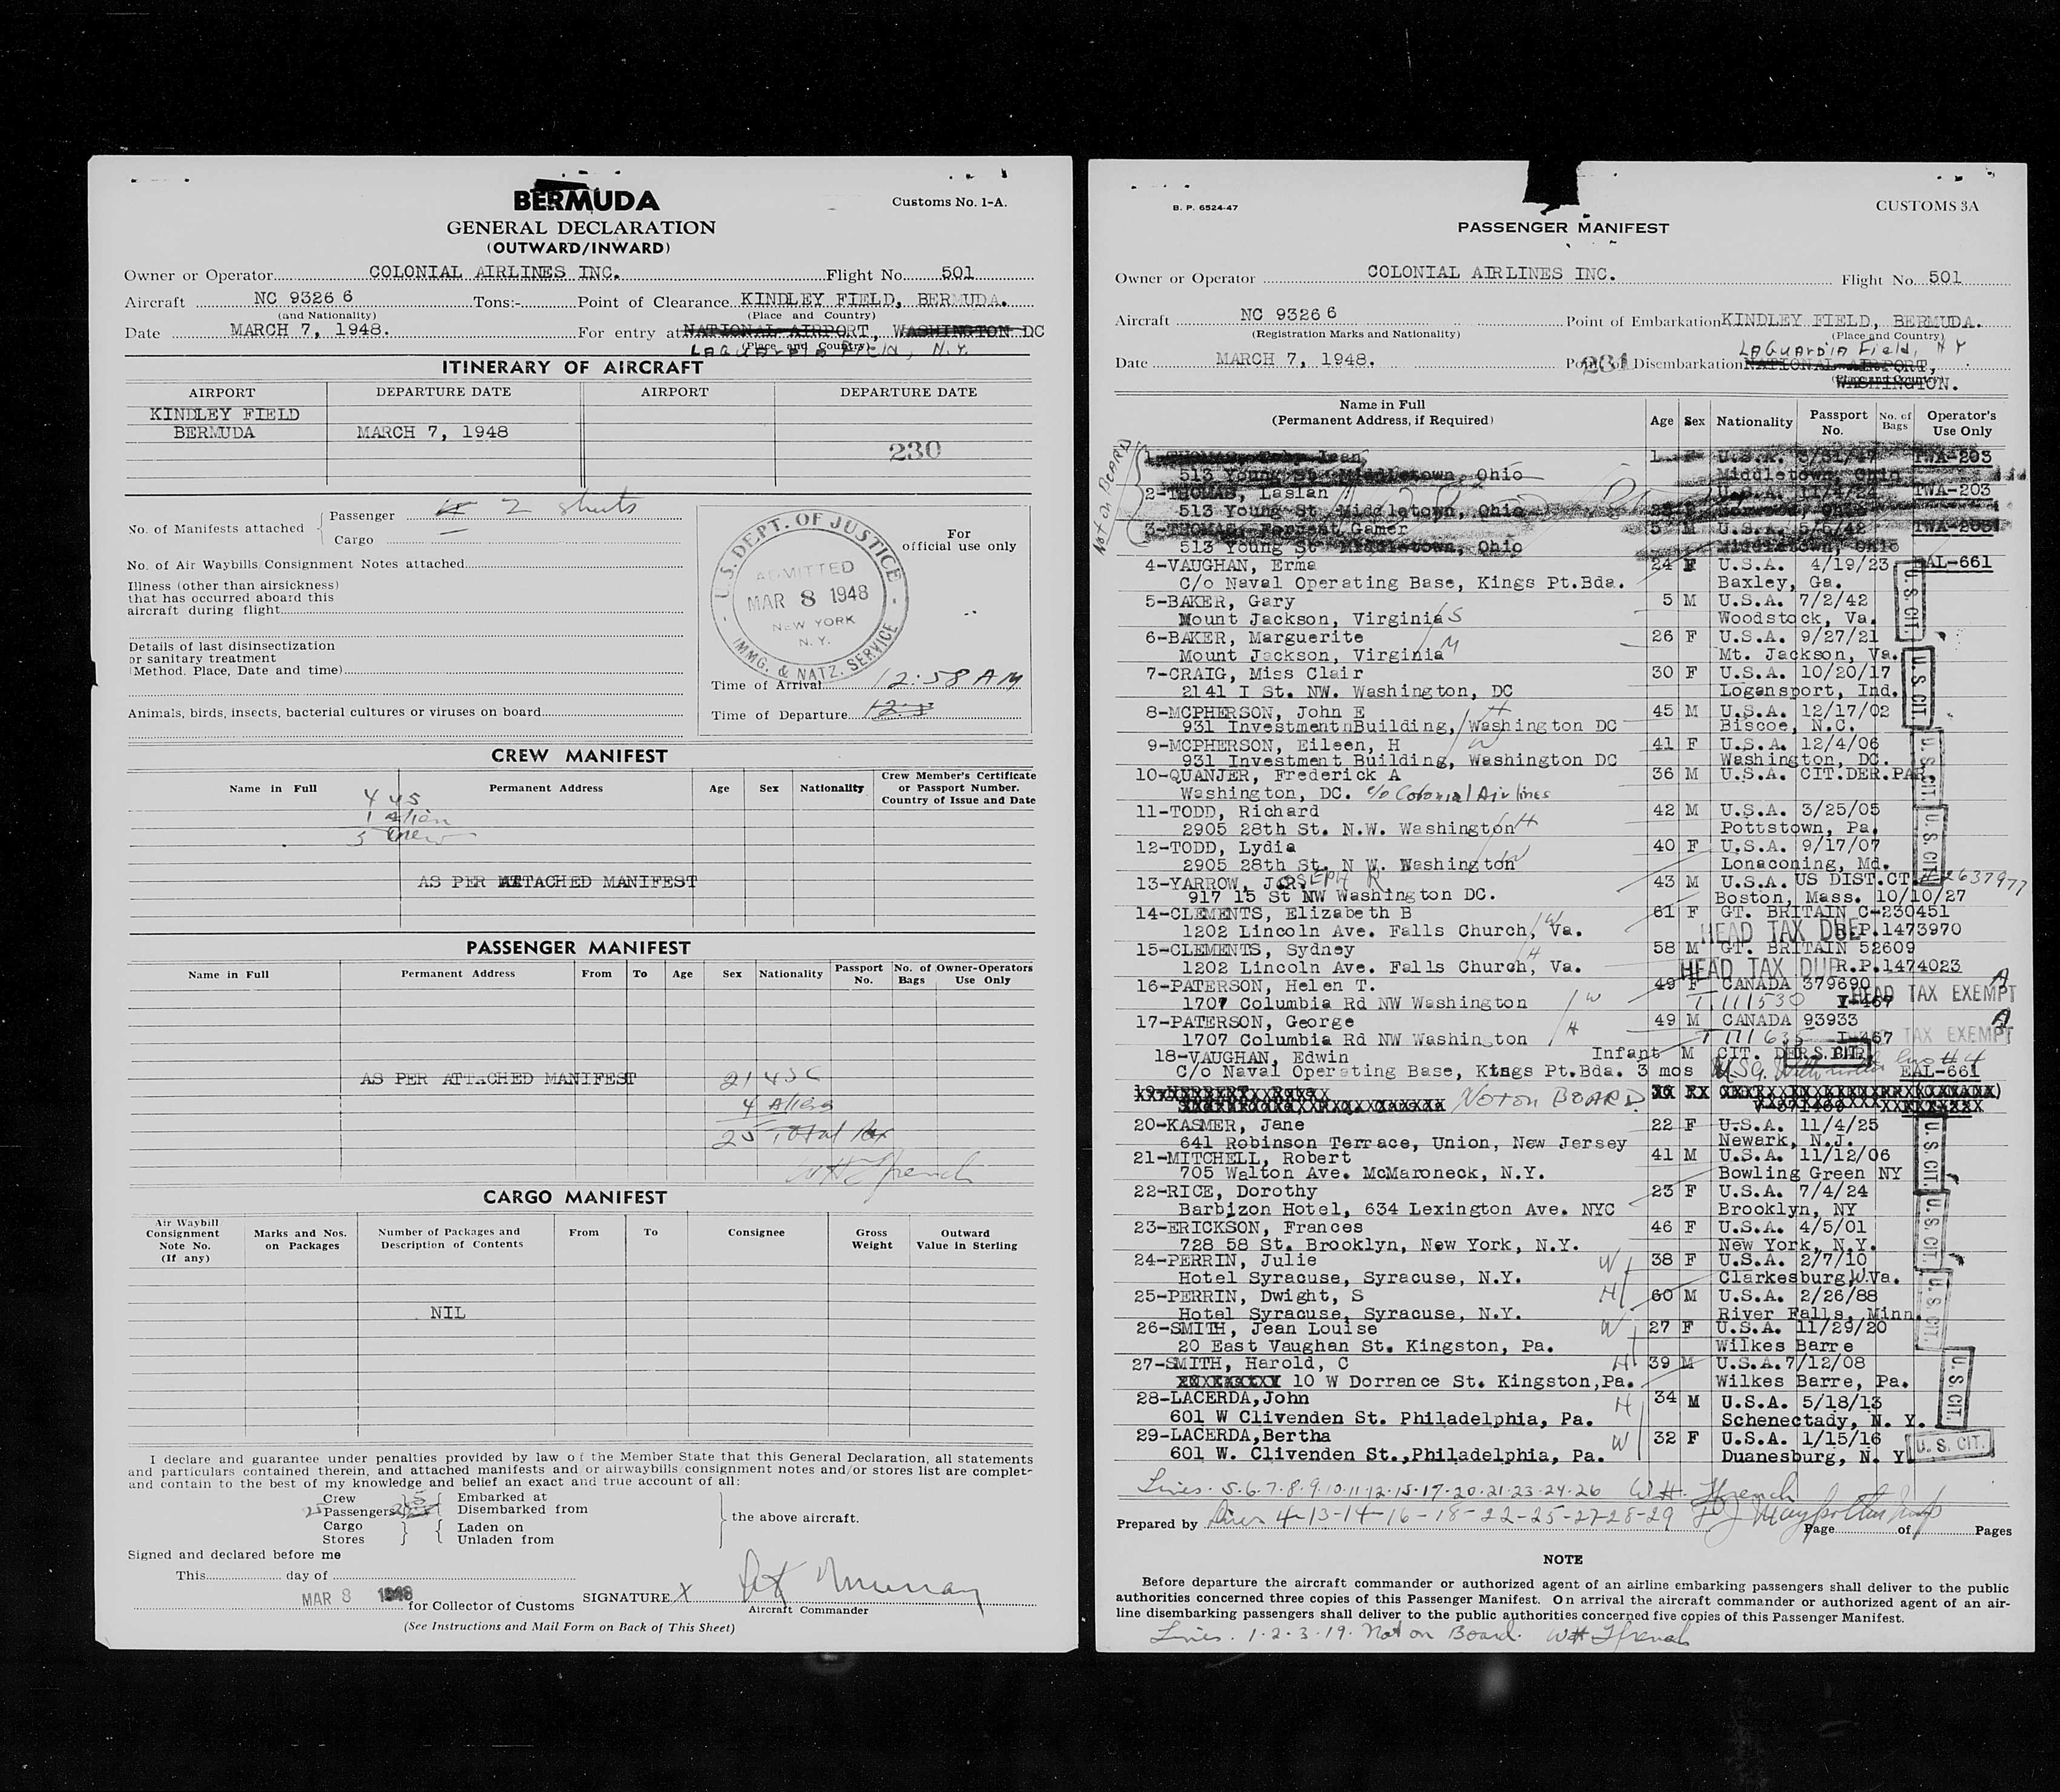 BERMUDA
Customs No. 1-A.
GENERAL DECLARATION
(OUTWARD/INWARD)
Owner or Operator COLONIAL AIRLINES INC. Flight No. 501
Aircraft NC 93266 Tons:- Point of Clearance KINDLEY FIELD, BERMUDA.
(and Nationality) (Place and Country)
Date MARCH 7, 1948. For entry at NATIONAL AIRPORT, WASHINGTON DC
(Place and Country)
LAGUARDIA FIELD, N.Y.
ITINERARY OF AIRCRAFT
AIRPORT DEPARTURE DATE AIRPORT DEPARTURE DATE
KINDLEY FIELD
BERMUDA MARCH 7, 1948
230
No. of Manifests attached
Passenger 2 sheets
Cargo
No. of Air Waybills/Consignment Notes attached
Illness (other than airsickness)
that has occurred aboard this
aircraft during flight
Details of last disinsectization
or sanitary treatment
(Method. Place, Date and time)
Animals, birds, insects, bacterial cultures or viruses on board
For
official use only
U.S. DEPT. OF JUSTICE
ADMITTED
MAR 8 1948
NEW YORK
N.Y.
IMMG. & NATZ. SERVICE
Time of Arrival 12:58 AM
Time of Departure
CREW MANIFEST
Name in Full Permanent Address Age Sex Nationality Crew Member's Certificate
or Passport Number.
Country of Issue and Date
4 US
1 Alien
5 Crew
AS PER ATTACHED MANIFEST
PASSENGER MANIFEST
Name in Full Permanent Address From To Age Sex Nationality Passport No. No. of Bags Owner-Operators Use Only
AS PER ATTACHED MANIFEST
21 USC
4 Aliens
25 Total Pax
WH Ffrench
CARGO MANIFEST
Air Waybill Consignment Note No. (If any) Marks and Nos. on Packages Number of Packages and Description of Contents From To Consignee Gross Weight Outward Value in Sterling
NIL
I declare and guarantee under penalties provided by law of the Member State that this General Declaration, all statements
and particulars contained therein, and attached manifests and or airwaybills/consignment notes and/or stores list are complet-
and contain to the best of my knowledge and belief an exact and true account of all:
Crew 5 Embarked at
25 Passengers Disembarked from
the above aircraft.
Cargo Laden on
Stores Unladen from
Signed and declared before me
This day of
MAR 8 1948 for Collector of Customs SIGNATURE X
Aircraft Commander
(See Instructions and Mail Form on Back of This Sheet)
B. P. 6524-47
CUSTOMS 3A
PASSENGER MANIFEST
Owner or Operator COLONIAL AIRLINES INC. Flight No. 501
Aircraft NC 93266 Point of Embarkation KINDLEY FIELD, BERMUDA.
(Registration Marks and Nationality) (Place and Country)
LAGUARDIA Field, NY
Date MARCH 7, 1948. 231 Point of Disembarkation NATIONAL AIRPORT,
WASHINGTON.
Name in Full Age Sex Nationality Passport No. No. of Bags Operator's Use Only
(Permanent Address, if Required)
Not on BOARD
1-THOMAS, Jean 1 U.S.A. 3/31/47 TWA-203
513 Young St. Middletown, Ohio Middletown, Ohio
2-THOMAS, Laslan U.S.A. 11/4/24 TWA-203
513 Young St. Middletown, Ohio
3-THOMAS, Forrest Gamer 5 M U.S.A. 5/6/42 TWA-203
513 Young St Middletown, Ohio Middletown, Ohio
4-VAUGHAN, Erma 24 F U.S.A. 4/19/23 EAL-661
C/o Naval Operating Base, Kings Pt.Bda. Baxley, Ga.
5-BAKER, Gary 5 M U.S.A. 7/2/42
Mount Jackson, Virginia S Woodstock, Va.
6-BAKER, Marguerite 26 F U.S.A. 9/27/21
Mount Jackson, Virginia M Mt. Jackson, Va.
7-CRAIG, Miss Clair 30 F U.S.A. 10/20/17
2141 I St. NW. Washington, DC Logansport, Ind.
8-MCPHERSON, John E H 45 M U.S.A. 12/17/02
931 InvestmentnBuilding, Washington DC Biscoe, N.C.
9-MCPHERSON, Eileen, H W 41 F U.S.A. 12/4/06
931 Investment Building, Washington DC Washington, DC.
10-QUANJER, Frederick A 36 M U.S.A. CIT.DER.PAR.
Washington, DC. c/o Colonial Airlines
11-TODD, Richard 42 M U.S.A. 3/25/05
2905 28th St. N.W. Washington H Pottstown, Pa.
12-TODD, Lydia 40 F U.S.A. 9/17/07
2905 28th St. N W. Washington W Lonaconing, Md.
13-YARROW, JOSEPH R 43 M U.S.A. US DIST.CT. # 2637977
917 15 St NW Washington DC. Boston, Mass. 10/10/27
14-CLEMENTS, Elizabeth B 61 F GT. BRITAIN C-230451
1202 Lincoln Ave. Falls Church, Va. W HEAD TAX DUE R.P.1473970
15-CLEMENTS, Sydney 58 M GT. BRITAIN 52609
1202 Lincoln Ave. Falls Church, Va. H HEAD TAX DUE R.P.1474023
16-PATERSON, Helen T. 49 F CANADA 379690 A
1707 Columbia Rd NW Washington W T 111530 I-467 HEAD TAX EXEMPT
17-PATERSON, George 49 M CANADA 93933 A
1707 Columbia Rd NW Washin ton H T 111635 I-467 HEAD TAX EXEMPT
18-VAUGHAN, Edwin Infant M CIT. DER.
C/o Naval Operating Base, Kings Pt.Bda. 3 mos EAL-661
Not on BOARD
20-KASMER, Jane 22 F U.S.A. 11/4/25
641 Robinson Terrace, Union, New Jersey Newark, N.J.
21-MITCHELL, Robert 41 M U.S.A. 11/12/06
705 Walton Ave. McMaroneck, N.Y. Bowling Green NY
22-RICE, Dorothy 23 F U.S.A. 7/4/24
Barbizon Hotel, 634 Lexington Ave. NYC Brooklyn, NY
23-ERICKSON, Frances 46 F U.S.A. 4/5/01
728 58 St. Brooklyn, New York, N.Y. New York, N.Y.
24-PERRIN, Julie W 38 F U.S.A. 2/7/10
Hotel Syracuse, Syracuse, N.Y. Clarkesburg,W.Va.
25-PERRIN, Dwight, S H 60 M U.S.A. 2/26/88
Hotel Syracuse, Syracuse, N.Y. River Falls, Minn.
26-SMITH, Jean Louise W 27 F U.S.A. 11/29/20
20 East Vaughan St. Kingston, Pa. Wilkes Barre
27-SMITH, Harold, C H 39 M U.S.A.7/12/08
10 W Dorrance St. Kingston,Pa. Wilkes Barre, Pa.
28-LACERDA,John H 34 M U.S.A. 5/18/13
601 W Clivenden St. Philadelphia, Pa. Schenectady, N. Y.
29-LACERDA,Bertha W 32 F U.S.A. 1/15/16
601 W. Clivenden St.,Philadelphia, Pa. Duanesburg, N. Y.
U. S. CIT.
Lines. 5.6.7.8.9.10.11.12.15.17.20.21.23.24.26 W.H. Ffrench
Prepared by Lines 4-13-14-16-18-22-25-27-28-29
Page of Pages
NOTE
Before departure the aircraft commander or authorized agent of an airline embarking passengers shall deliver to the public
authorities concerned three copies of this Passenger Manifest. On arrival the aircraft commander or authorized agent of an air-
line disembarking passengers shall deliver to the public authorities concerned five copies of this Passenger Manifest.
Lines. 1.2.3.19. Not on Board. WH Ffrench